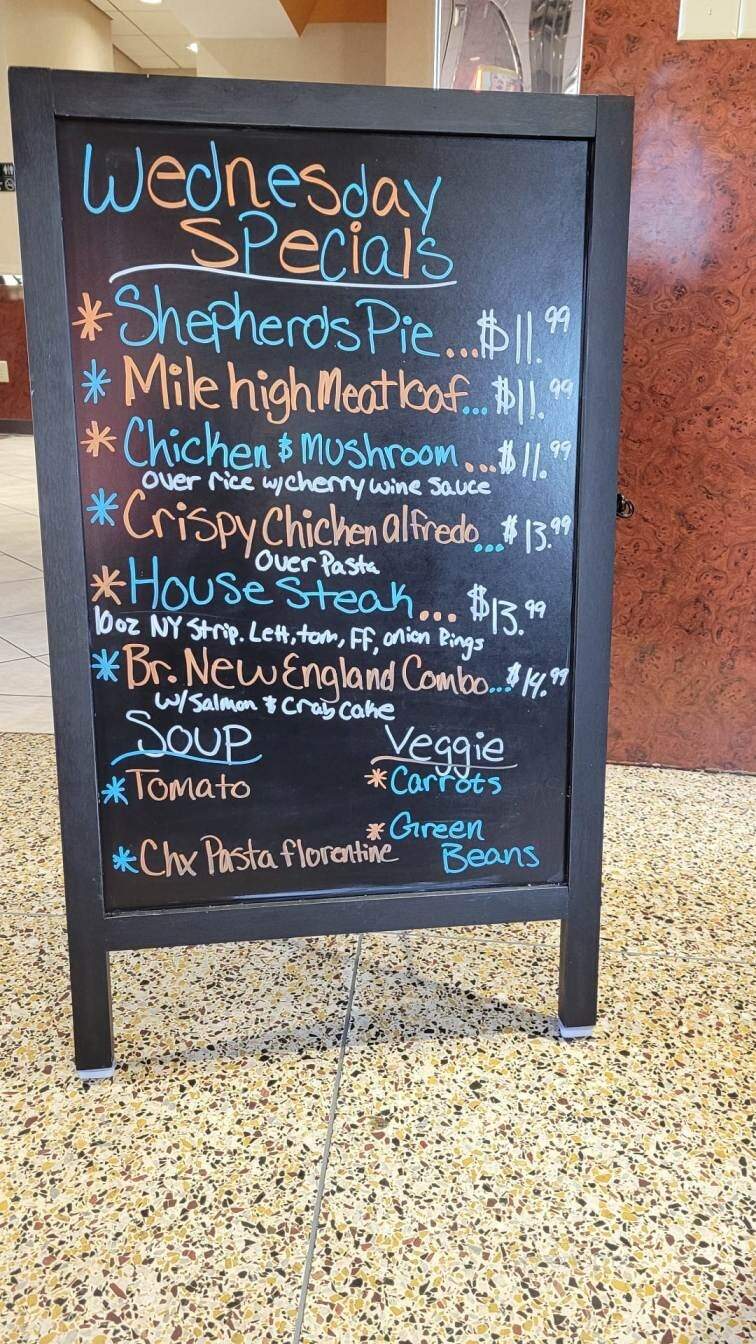 Wednesday
Specials
* Shepherds Pie...$11.99
* Mile high Meatloaf...$11.99
* Chicken & Mushroom...$11.99
over rice w/cherry wine sauce
* Crispy Chicken alfredo...$13.99
over Pasta
* House Steak... $13.99
10oz NY Strip. Lett, tom, FF, onion Rings
* Br. New England Combo...$14.99
w/ Salmon & Crab Cake
Soup
* Tomato
* Chx Pasta florentine
Veggie
* Carrots
* Green
Beans